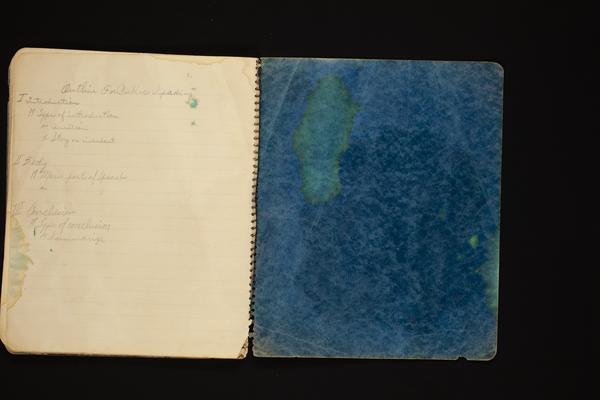 Outline For Public Speaking
I Introduction
A Type of introduction
a.
2. Story or incident
II Body
A Main part of speech
a.
III Conclusion
A Type of conclusion
a. Summarize